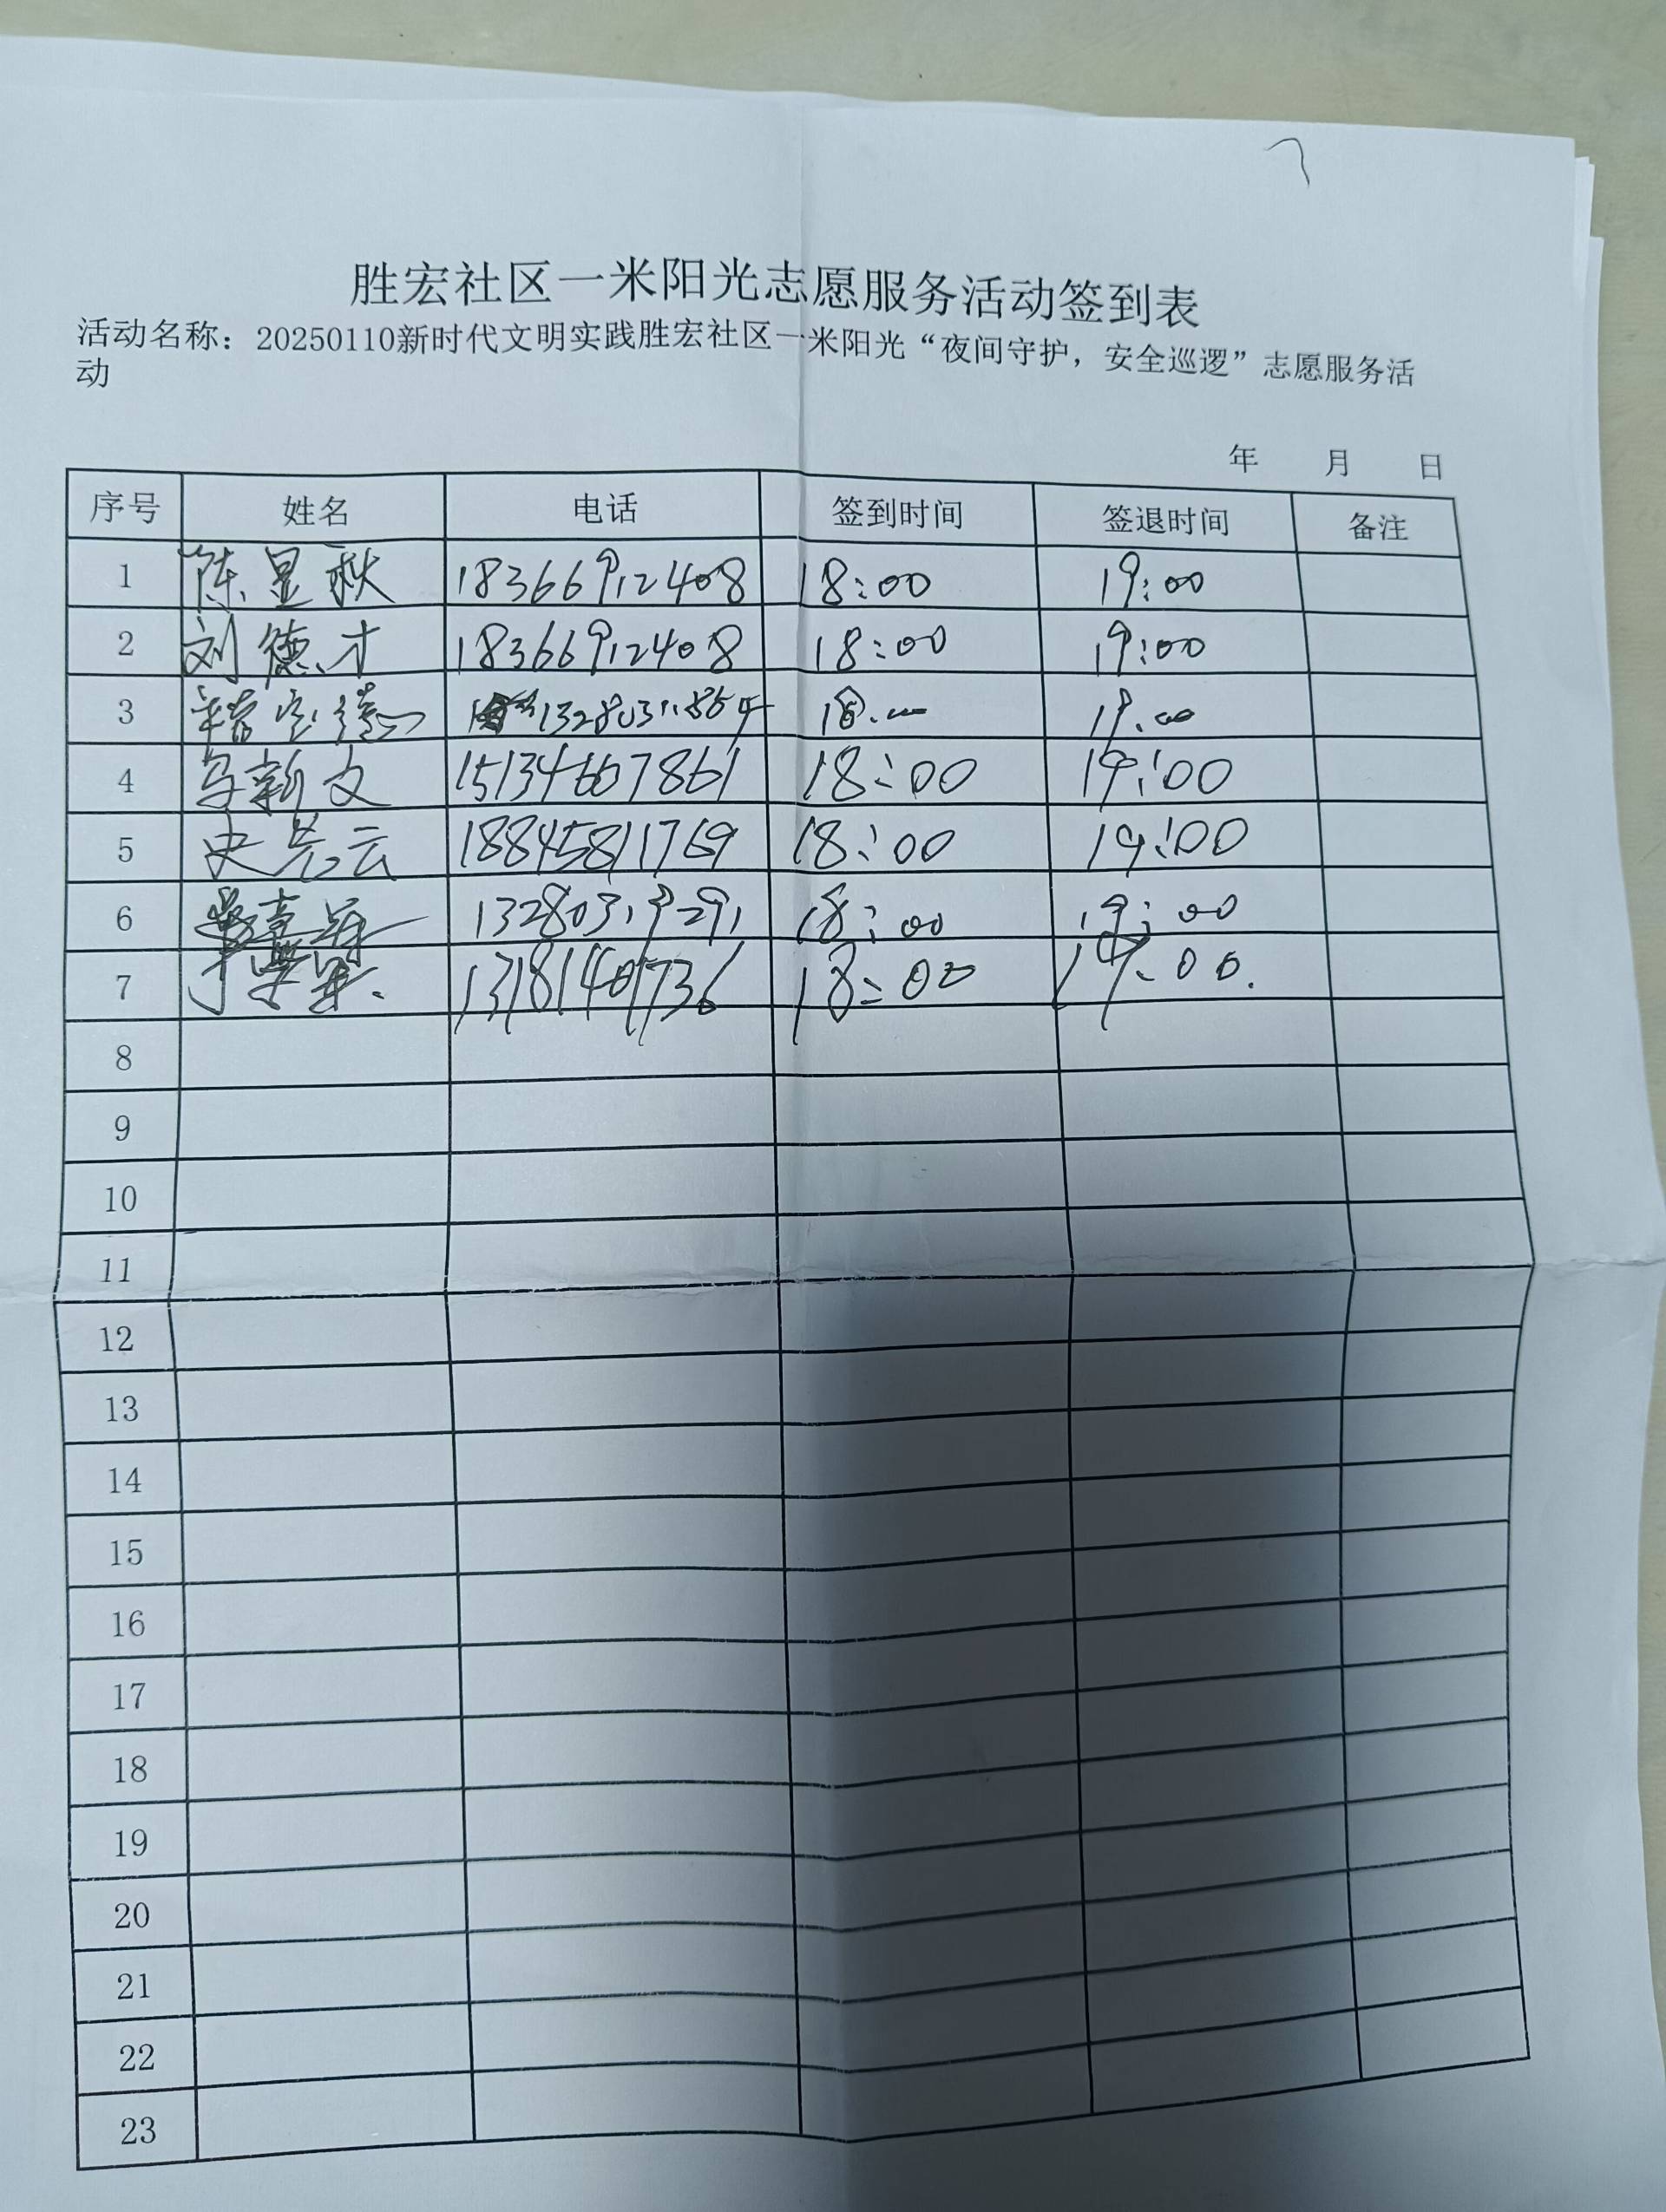 胜宏社区一米阳光志愿服务活动签到表
活动名称：20250110新时代文明实践胜宏社区一米阳光“夜间守护，安全巡逻”志愿服务活
动
年 月 日
序号 姓名 电话 签到时间 签退时间 备注
1 陈显秋 18366912408 18:00 19:00
2 刘德才 18366912408 18:00 19:00
3 18.00 19.00
4 新文 15134667861 18:00 19:00
5 史先云 18845811769 18:00 19:00
6 13280319291 18:00 19:00
7 13181401736 18:00 19:00.
8
9
10
11
12
13
14
15
16
17
18
19
20
21
22
23